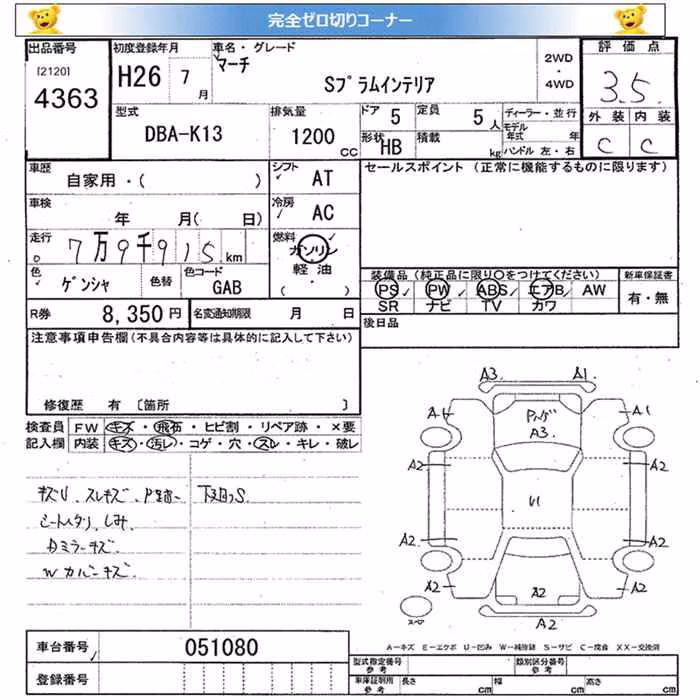 完全ゼロ切りコーナー
出品番号 初度登録年月 車名・グレード 2WD・4WD 評価点
[2120] 4363 H26 7月 マーチ Sプラムインテリア 3.5
型式 排気量 ドア 5 定員 5人 ディーラー・並行 外装 内装
DBA-K13 1200CC 形状 HB 積載 kg モデル年式 年 C C
ハンドル 左・右
車歴 シフト セールスポイント (正常に機能するものに限ります)
自家用・( ) AT
車検 年 月( 日) 冷房 AC
走行 7万9千915km 燃料 ガソリン
軽油
( ・ )
色 ゲンシャ 色替 色コード GAB
装備品 (純正品に限り○をつけてください) 新車保証書
PS PW ABS エアB AW 有・無
SR ナビ TV カワ
R券 8,350円 名変通知期限 月 日 後日品
注意事項申告欄(不具合内容等は具体的に記入して下さい)
修復歴 有 [箇所 ]
検査員 FW キズ・飛石・ヒビ割・リペア跡・×要
記入欄 内装 キズ・汚レ・コゲ・穴・スレ・キレ・破レ
シートヘタリ、しみ
Dミラーキズ
Wカバーキズ
A3 A1
A1 A1
A3
A2 A2
U1
A2 A2
A2 A2 A2
A2
スペア
A－キズ E－エクボ U－凹み W－補修跡 S－サビ C－腐食 XX－交換済
車台番号 051080
登録番号
型式指定番号 参考 類別区分番号 参考
車庫証明用 参考 長さ cm 幅 cm 高さ cm